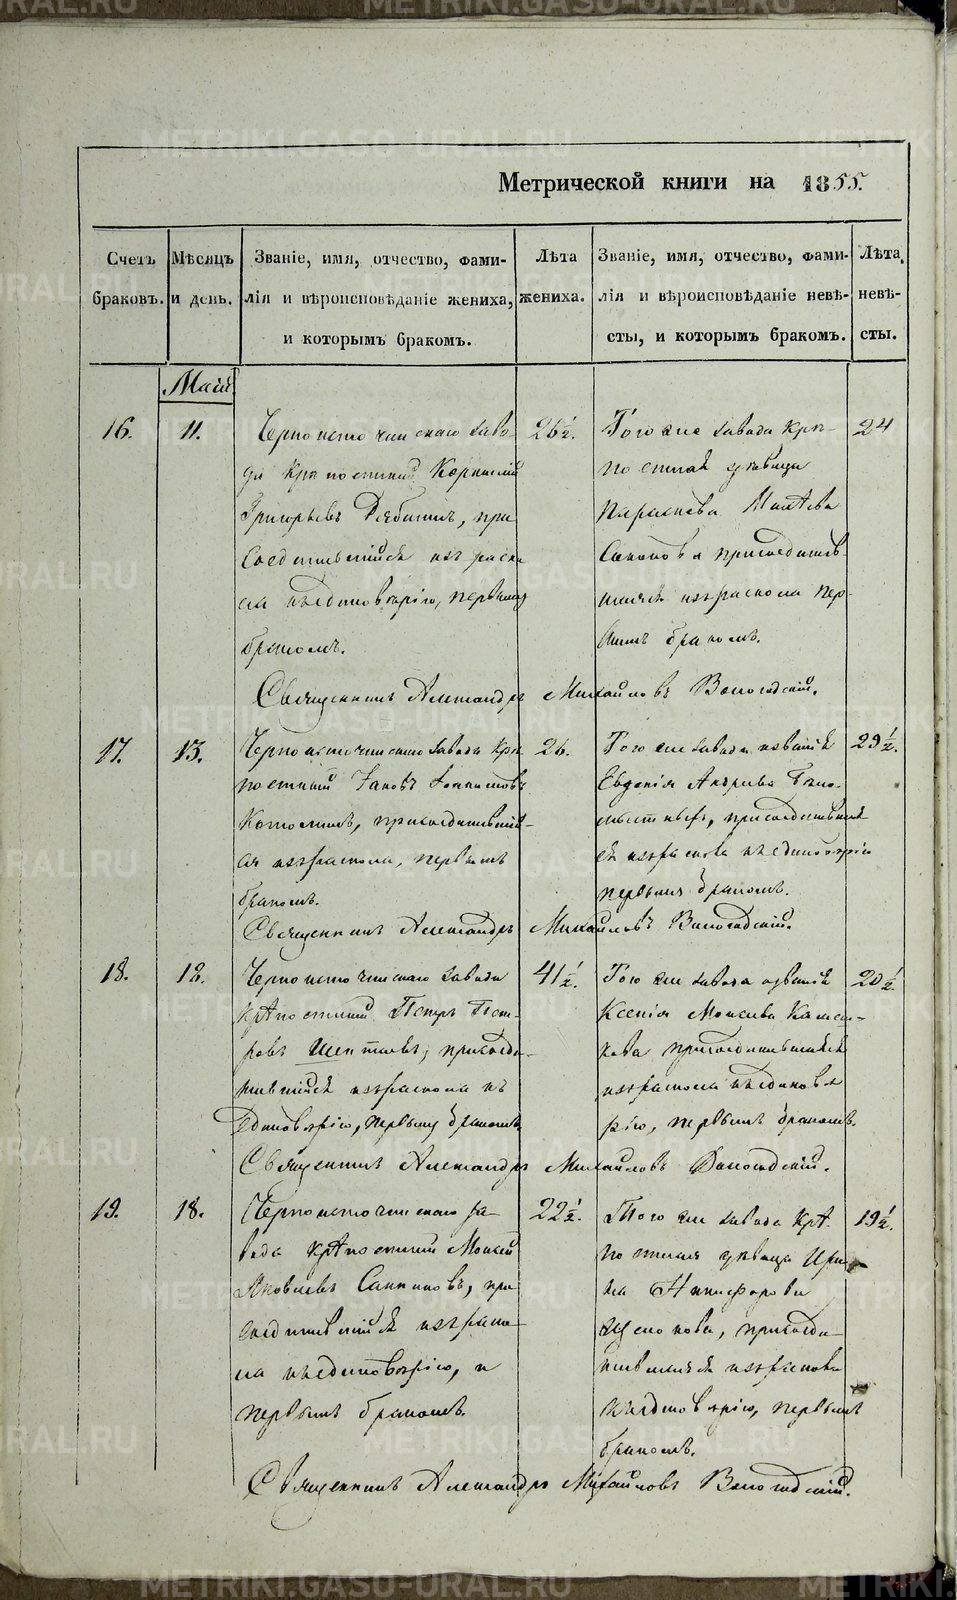 Метрической книги на 1855.
Счетъ браковъ.
Мѣсяцъ и день.
Званіе, имя, отчество, фами-
лія и вѣроисповѣданіе жениха,
и которымъ бракомъ.
Лѣта
жениха.
Званіе, имя, отчество, фами-
лія и вѣроисповѣданіе невѣ-
сты, и которымъ бракомъ.
Лѣта
невѣ-
сты.
Маій
16.
11.
Черноисточинскаго заво-
да крѣпостный Корнилій
Григорьевъ, при
соединившійся изъ раско
ла къ единовѣрію, первымъ
бракомъ.
26½.
Того же завода крѣ-
постная дѣвица
Парасковья
присоединив-
шаяся изъ раскола пер-
вымъ бракомъ.
24
Священникъ Александръ Михайловъ Вологодскій.
17.
13.
Черноисточинскаго завода крѣ
постный Іаковъ
присоединившій-
ся изъ раскола, первымъ
бракомъ.
26.
Того же завода дѣвица
Евгенія Андреева
присоединивша
ся изъ раскола къ единовѣрію
первымъ бракомъ.
29½.
Священникъ Александръ Михайловъ Вологодскій.
18.
18.
Черноисточинскаго завода
крѣпостный Петръ Пет-
ровъ присоеди-
нившійся изъ раскола къ
единовѣрію, первымъ бракомъ.
41½.
Того же завода дѣвица
Ксенія Моисеева
присоединившаяся
изъ раскола къ единовѣ
рію, первымъ бракомъ.
20½.
Священникъ Александръ Михайловъ Вологодскій.
19.
18.
Черноисточинскаго за-
вода крѣпостный Моисей
Яковлевъ Санниковъ, при
соединившійся изъ раско-
ла къ единовѣрію, и
первымъ бракомъ.
22½.
Того же завода крѣ-
постная дѣвица Ири-
на Никифорова
присоеди-
нившаяся изъ раскола
къ единовѣрію, первымъ
бракомъ.
19½.
Священникъ Александръ Михайловъ Вологодскій.
METRIKI.GASO-URAL.RU